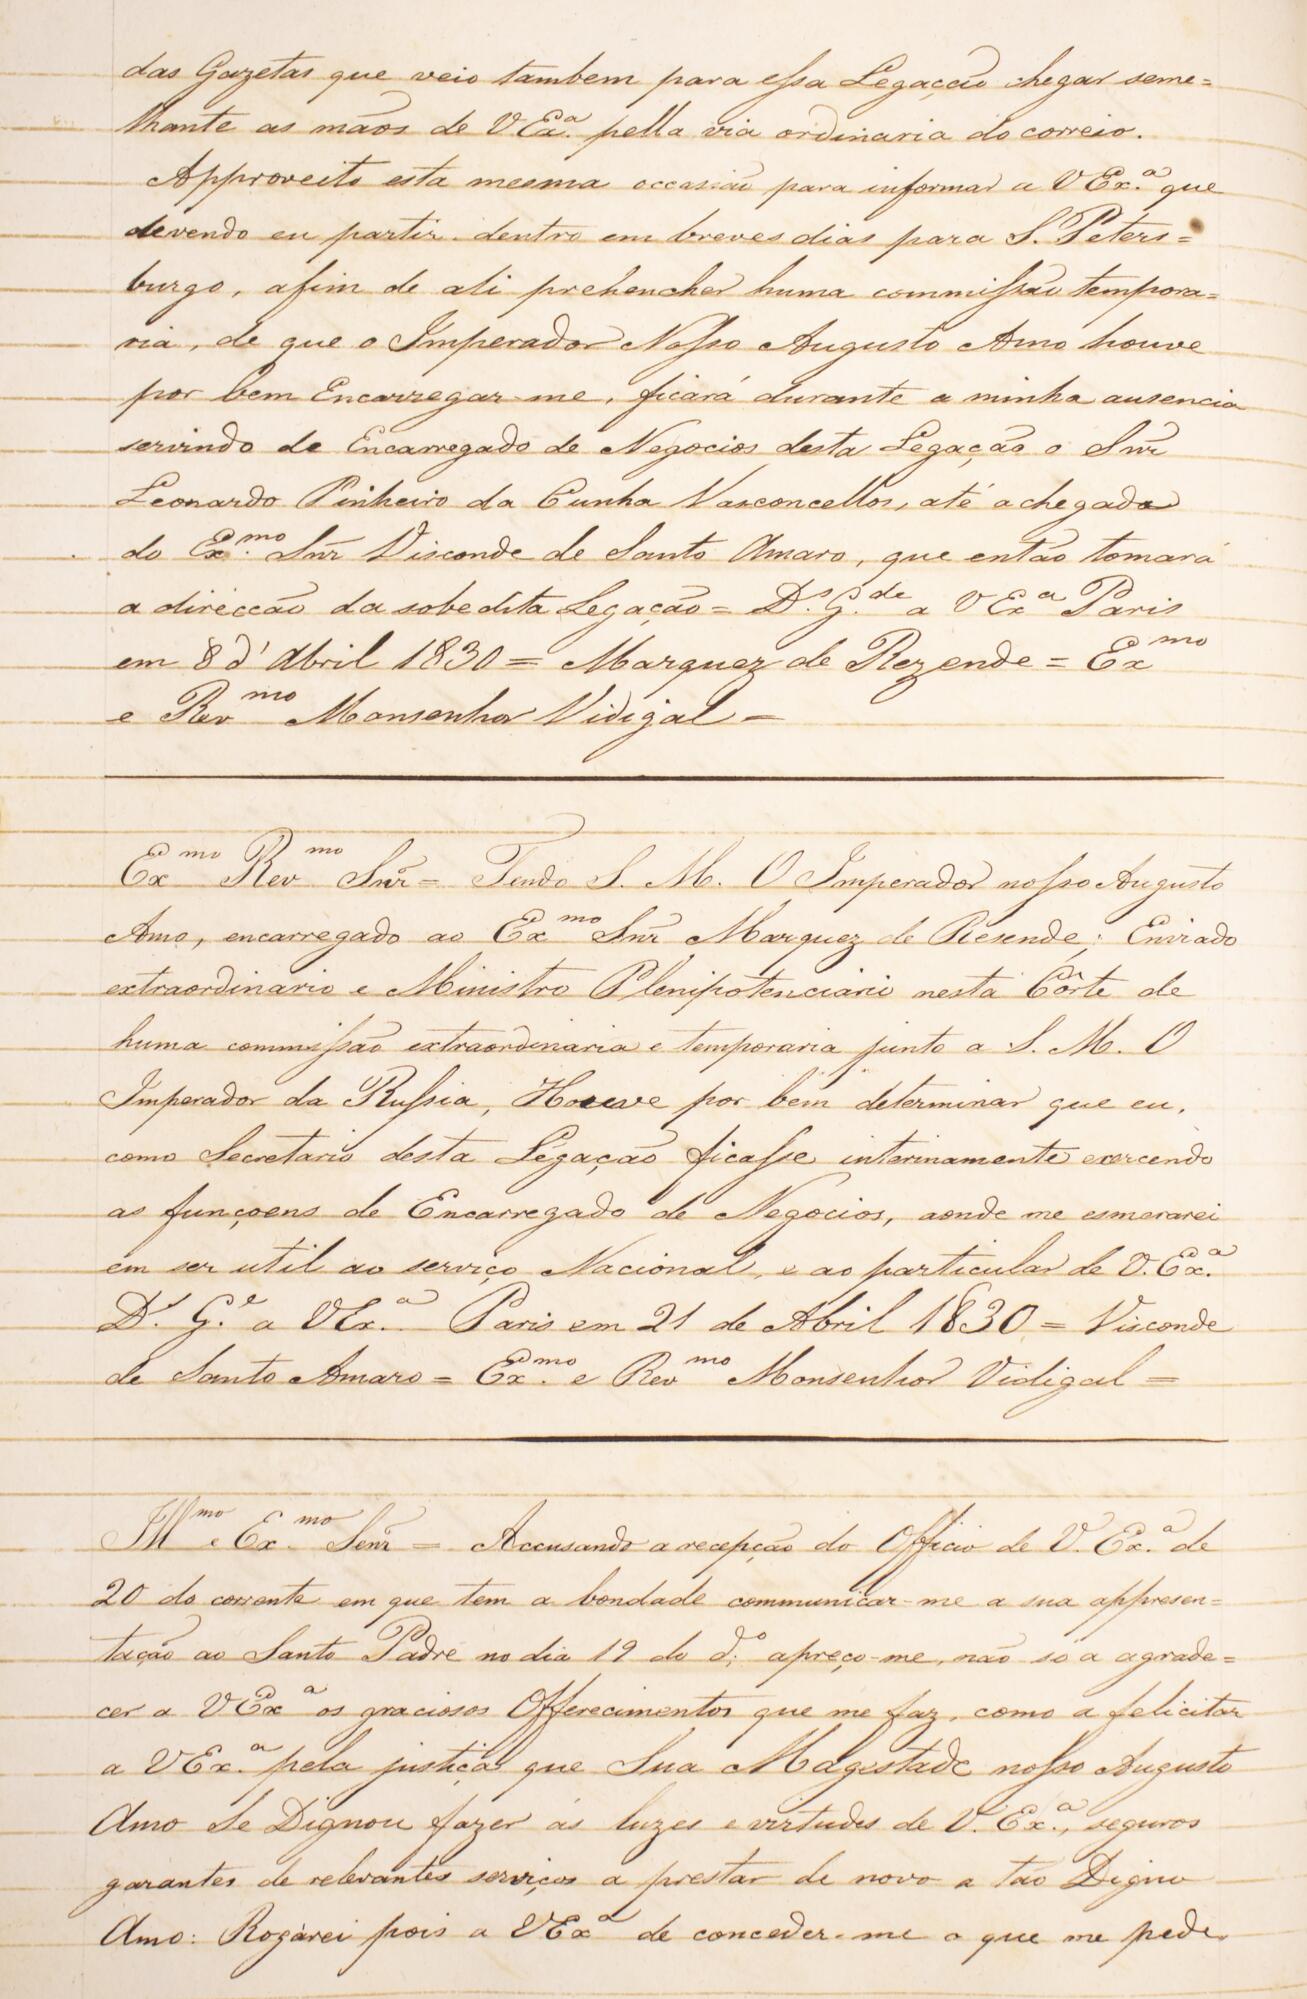 das Gazetas que veio tambem para essa Legação chegar seme=
lhante as mãos de VExª. pella via ordinaria do correio.
Approveito esta mesma occasião para informar a VEx.ª que
devendo eu partir dentro em breves dias para S. Peters=
burgo, afim de ali prehencher huma commissão tempora=
ria, de que o Imperador Nosso Augusto Amo houve
por bem Encarregar-me, ficará durante a minha ausencia
servindo de Encarregado de Negocios desta Legação o Snr
Leonardo Pinheiro da Cunha Vasconcellos, até a chegada
do Ex.mo Snr Visconde de Santo Amaro, que então tomará
a direcção da sobredita Legação = D.s G.de a VExª Paris
em 8 d'Abril 1830 = Marquez de Rezende = Exmo
e Revmo Monsenhor Vidigal =
Exmo Revmo Snr = Tendo S. M. O Imperador nosso Augusto
Amo, encarregado ao Exmo Snr Marquez de Resende; Enviado
extraordinario e Ministro Plenipotenciario nesta Côrte de
huma commissão extraordinaria e temporaria junto a S. M. O
Imperador da Russia, Houve por bem determinar que eu,
como Secretario desta Legação ficasse interinamente exercendo
as funçoens de Encarregado de Negocios, aonde me esmerarei
em ser util ao serviço Nacional, e ao particular de V. Ex.ª
D.s G.e a VEx.ª Paris em 21 de Abril 1830 = Visconde
de Santo Amaro = Ex.mo e Revmo Monsenhor Vidigal =
Illmo e Ex.mo Senr = Accusando a recepção do Officio de V. Ex.ª de
20 do corrente em que tem a bondade communicar-me a sua appresen=
tação ao Santo Padre no dia 19 do d.º apreço-me, não só a agrade=
cer a VExª os graciosos Offerecimentos que me faz, como a felicitar
a VEx.ª pela justiça que Sua Magestade nosso Augusto
Amo Se Dignou fazer ás luzes e virtudes de V. Ex.ª, seguros
garantes de relevantes serviços a prestar de novo a tão Digno
Amo: Rogarei pois a VExª de conceder-me o que me pede,